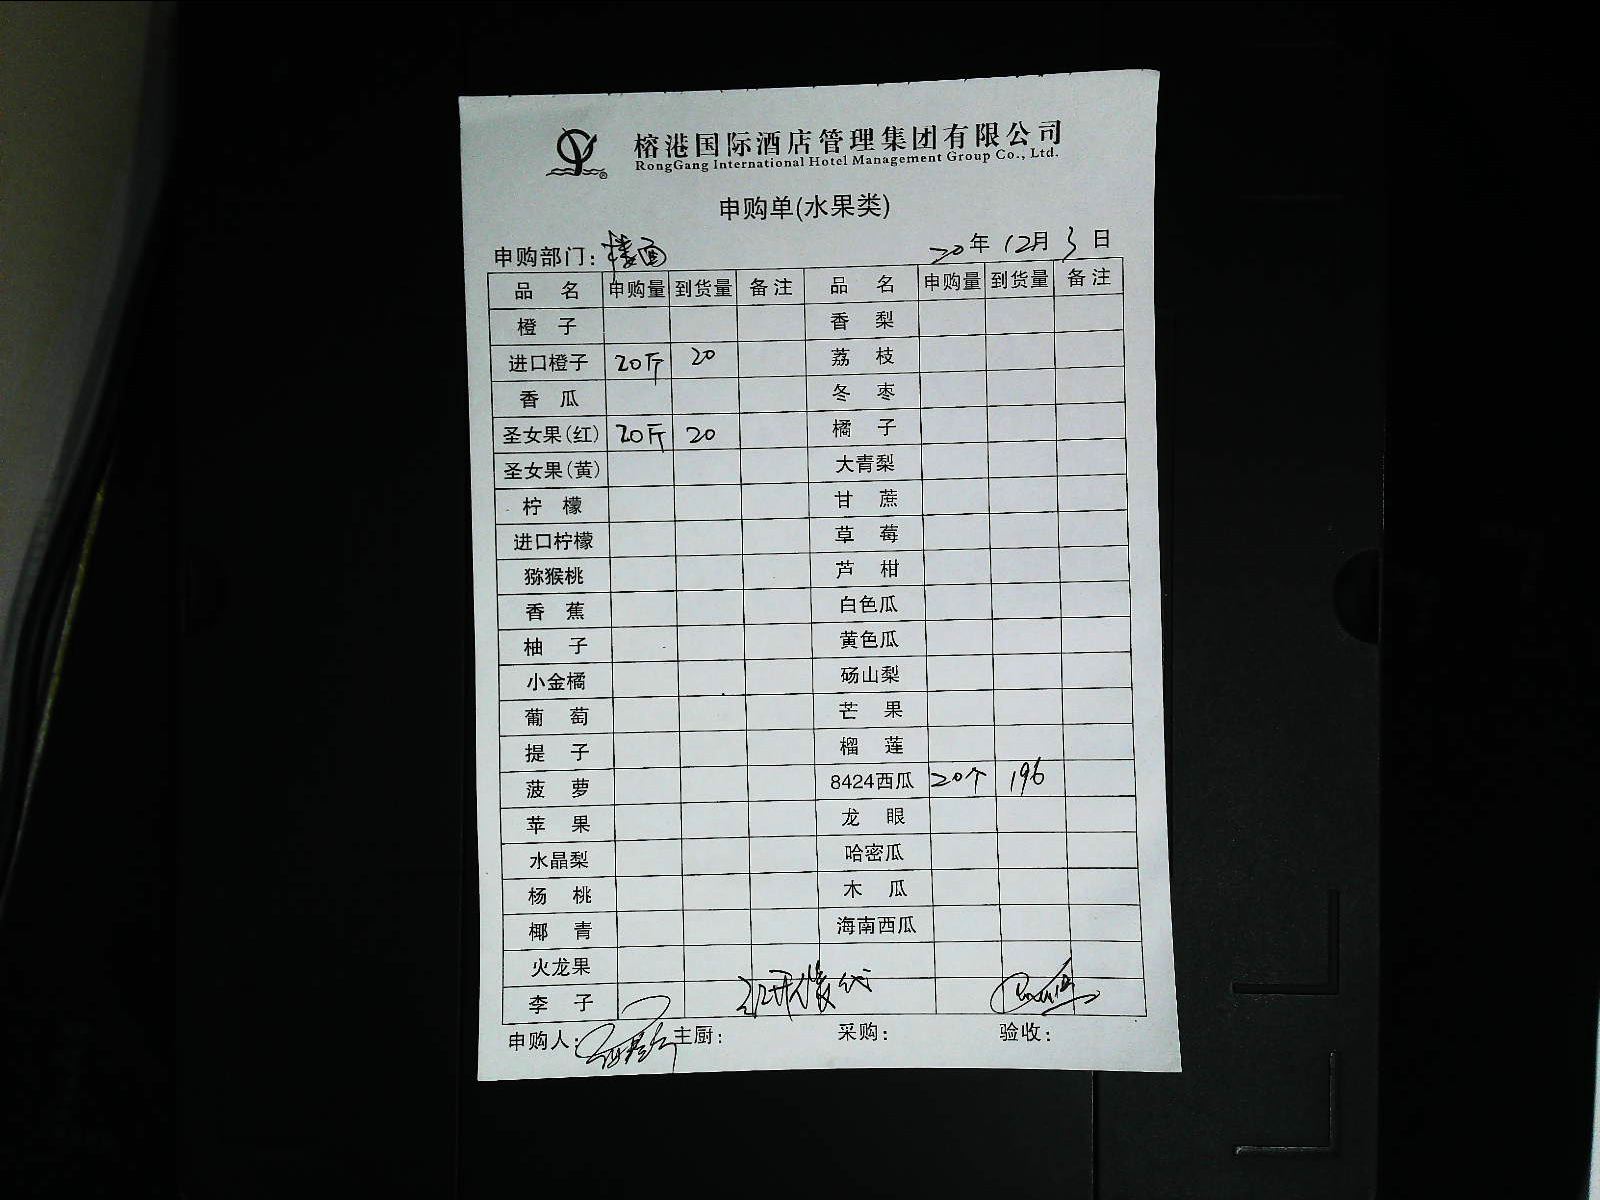 榕港国际酒店管理集团有限公司
RongGang International Hotel Management Group Co., Ltd.
申购单(水果类)
申购部门：楼面 20年12月3日
品名 申购量 到货量 备注 品名 申购量 到货量 备注
橙子 香梨
进口橙子 20斤 20 荔枝
香瓜 冬枣
圣女果(红) 20斤 20 橘子
圣女果(黄) 大青梨
柠檬 甘蔗
进口柠檬 草莓
猕猴桃 芦柑
香蕉 白色瓜
柚子 黄色瓜
小金橘 砀山梨
葡萄 芒果
提子 榴莲
菠萝 8424西瓜 20个 196
苹果 龙眼
水晶梨 哈密瓜
杨桃 木瓜
椰青 海南西瓜
火龙果
李子
申购人： 主厨： 采购： 验收：